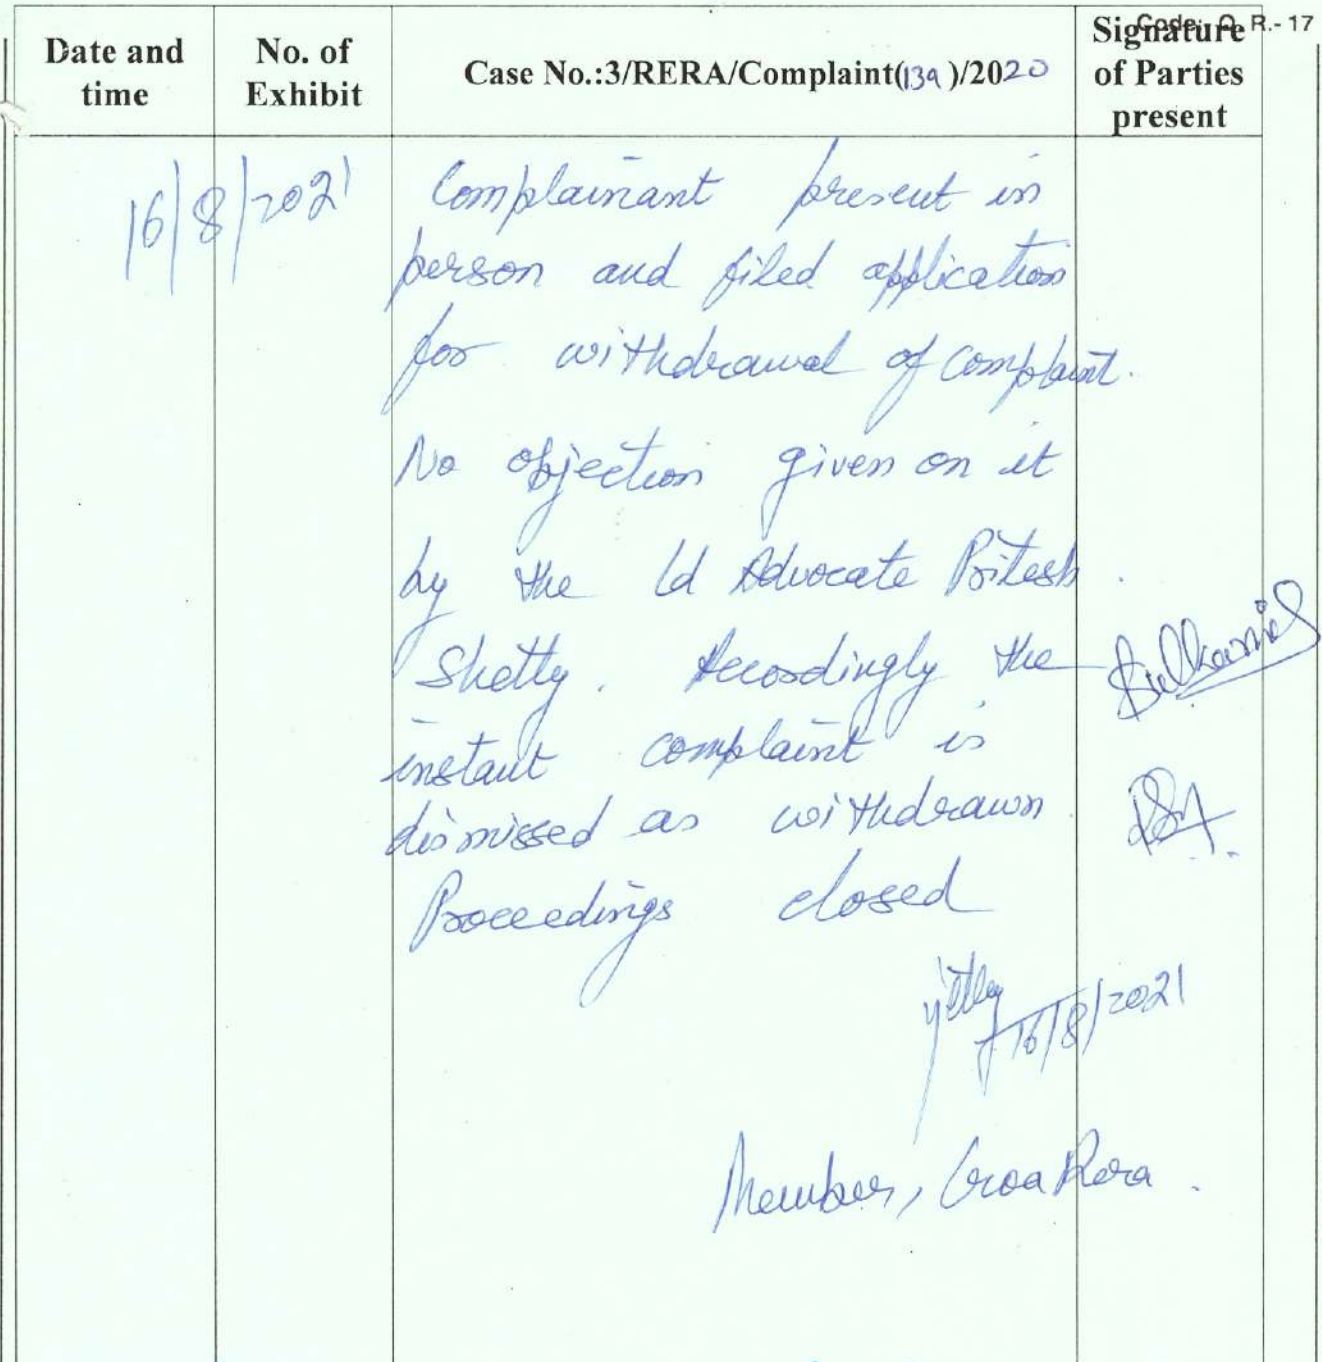 Code: O. R.- 17
Date and time
No. of Exhibit
Case No.:3/RERA/Complaint(139)/2020
Signature of Parties present
16/8/2021
Complainant present in
person and filed application
for withdrawal of complaint.
No objection given on it
by the Ld Advocate Pritesh
Shetty. Accordingly the
instant complaint is
dismissed as withdrawn
Proceedings closed
16/8/2021
Member, Goa Rera.